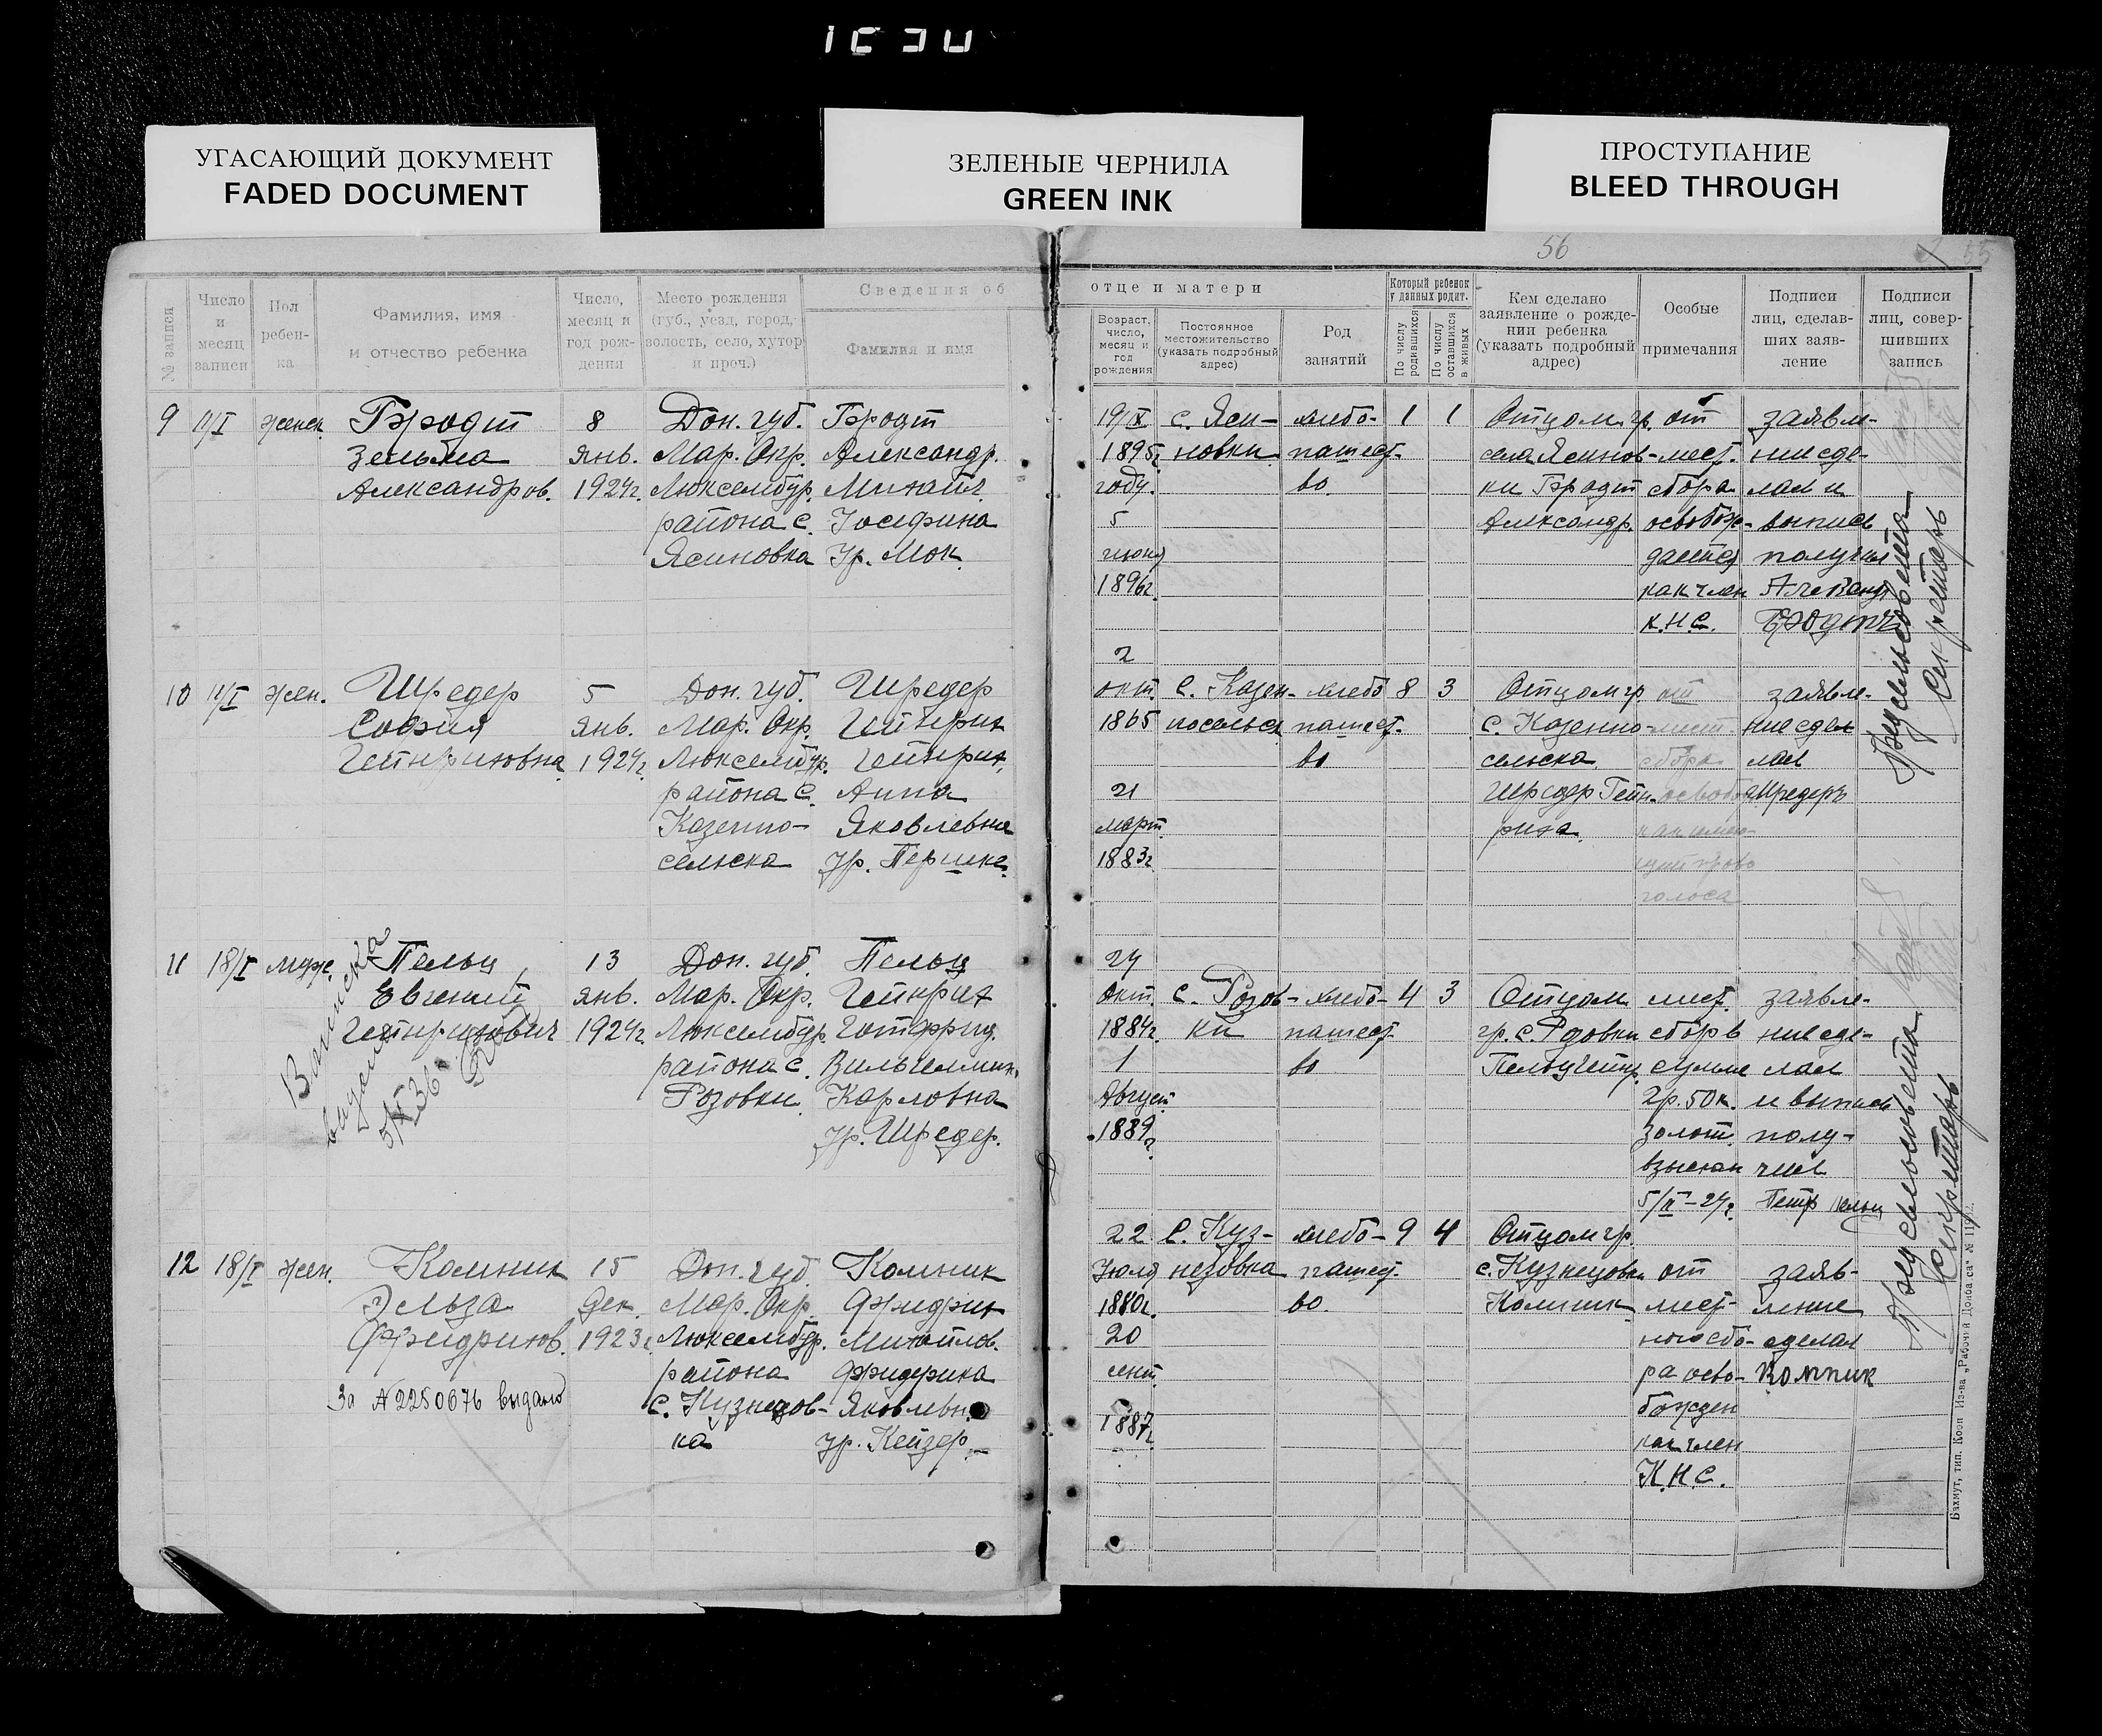 УГАСАЮЩИЙ ДОКУМЕНТ
FADED DOCUMENT
ЗЕЛЕНЫЕ ЧЕРНИЛА
GREEN INK
ПРОСТУПАНИЕ
BLEED THROUGH
56
№ записи
Число
и
месяц
записи
Пол
ребен-
ка
Фамилия, имя
и отчество ребенка
Число,
месяц и
год рож-
дения
Место рождения
(губ., уезд, город,
волость, село, хутор
и проч.)
Сведения об
Фамилия и имя
отце и матери
Возраст,
число,
месяц и
год
рождения
Постоянное
местожительство
(указать подробный
адрес)
Род
занятий
Который ребенок
у данных родит.
По числу
родившихся
По числу
оставшихся
в живых
Кем сделано
заявление о рожде-
нии ребенка
(указать подробный
адрес)
Особые
примечания
Подписи
лиц, сделав-
ших заяв-
ление
Подписи
лиц, совер-
шивших
запись
9
11/I
женск.
Бродт
Зельма
Александров.
8
янв.
1924г.
Дон. губ.
Мар. Окр.
Люксембур.
района с.
Ясиновка
Бродт
Александр.
Михайл.
Иосифина
Ур. Мок.
19/IX
1895г
году.
5
июня
1896г.
с. Яси-
новки
хлебо-
пашест-
во.
1
1
Отцом гр.
села Яс
ки Бродт
Александр.
от
мест.
сбора
освобож-
дается
как член
К.Н.С.
заявле-
ние сде-
лал и
выпись
получил
10
11/I
жен.
Шредер
София
Гейнриховна
5
янв.
1924г.
Дон. губ.
Мар. Окр.
Люксембур.
района с.
Казенно-
сельска
Шредер
Гейнрих
Гейнрих.
Анна
Яковлевна
ур.
2
окт.
1865
21
март.
1883г
с. Казен-
носельск
хлебо
пашест-
во
8
3
Отцом гр.
с. Казенно-
сельска
Шредер Гейн-
риха.
от
мест
сбора
голоса
заявле-
ние сдел
лал
Шредеръ
Предсельсовета
Секретарь
11
18/I
муж.
Пельц
Евгений
Гейнрихович
Выписка
выдана
13
янв.
1924г.
Дон. губ.
Мар. Окр.
Люксембур.
района с.
Розовки
Пельц
Гейнрих
Готфрид.
Вильгельмин.
Карловна
ур. Шредер.
24
Окт.
1884г.
1
Август.
1889
г.
с. Розов-
ки
хлебо-
пашест-
во
4
3
Отцом
гр. с. Розовки
мест.
сбор в
сумме
2р. 50к.
золот.
взыскан
5/II-24г.
заявле-
ние сде-
лал
и выпись
полу-
чил
Пельц
12
18/I
жен.
Комник
Эльза
Фридрихов.
За № 2250676 выдано
15
дек.
1923г.
Дон. губ.
Мар. Окр.
Люксембур.
района
с. Кузнецов-
ка
Комник
Фридрих
Михайлов.
Фридерика
Яковлевн.
ур. Кейзер.
22
Июля
1880г.
20
сент.
1887г.
с. Куз-
нецовка
хлебо-
пашест-
во.
9
4
Отцом гр.
с. Кузнецовки
Комник
от
мест-
ного сбо-
ра осво-
божден
как член
К.Н.С.
заяв-
ление
сделал
Комник
Предсельсовета
Секретарь